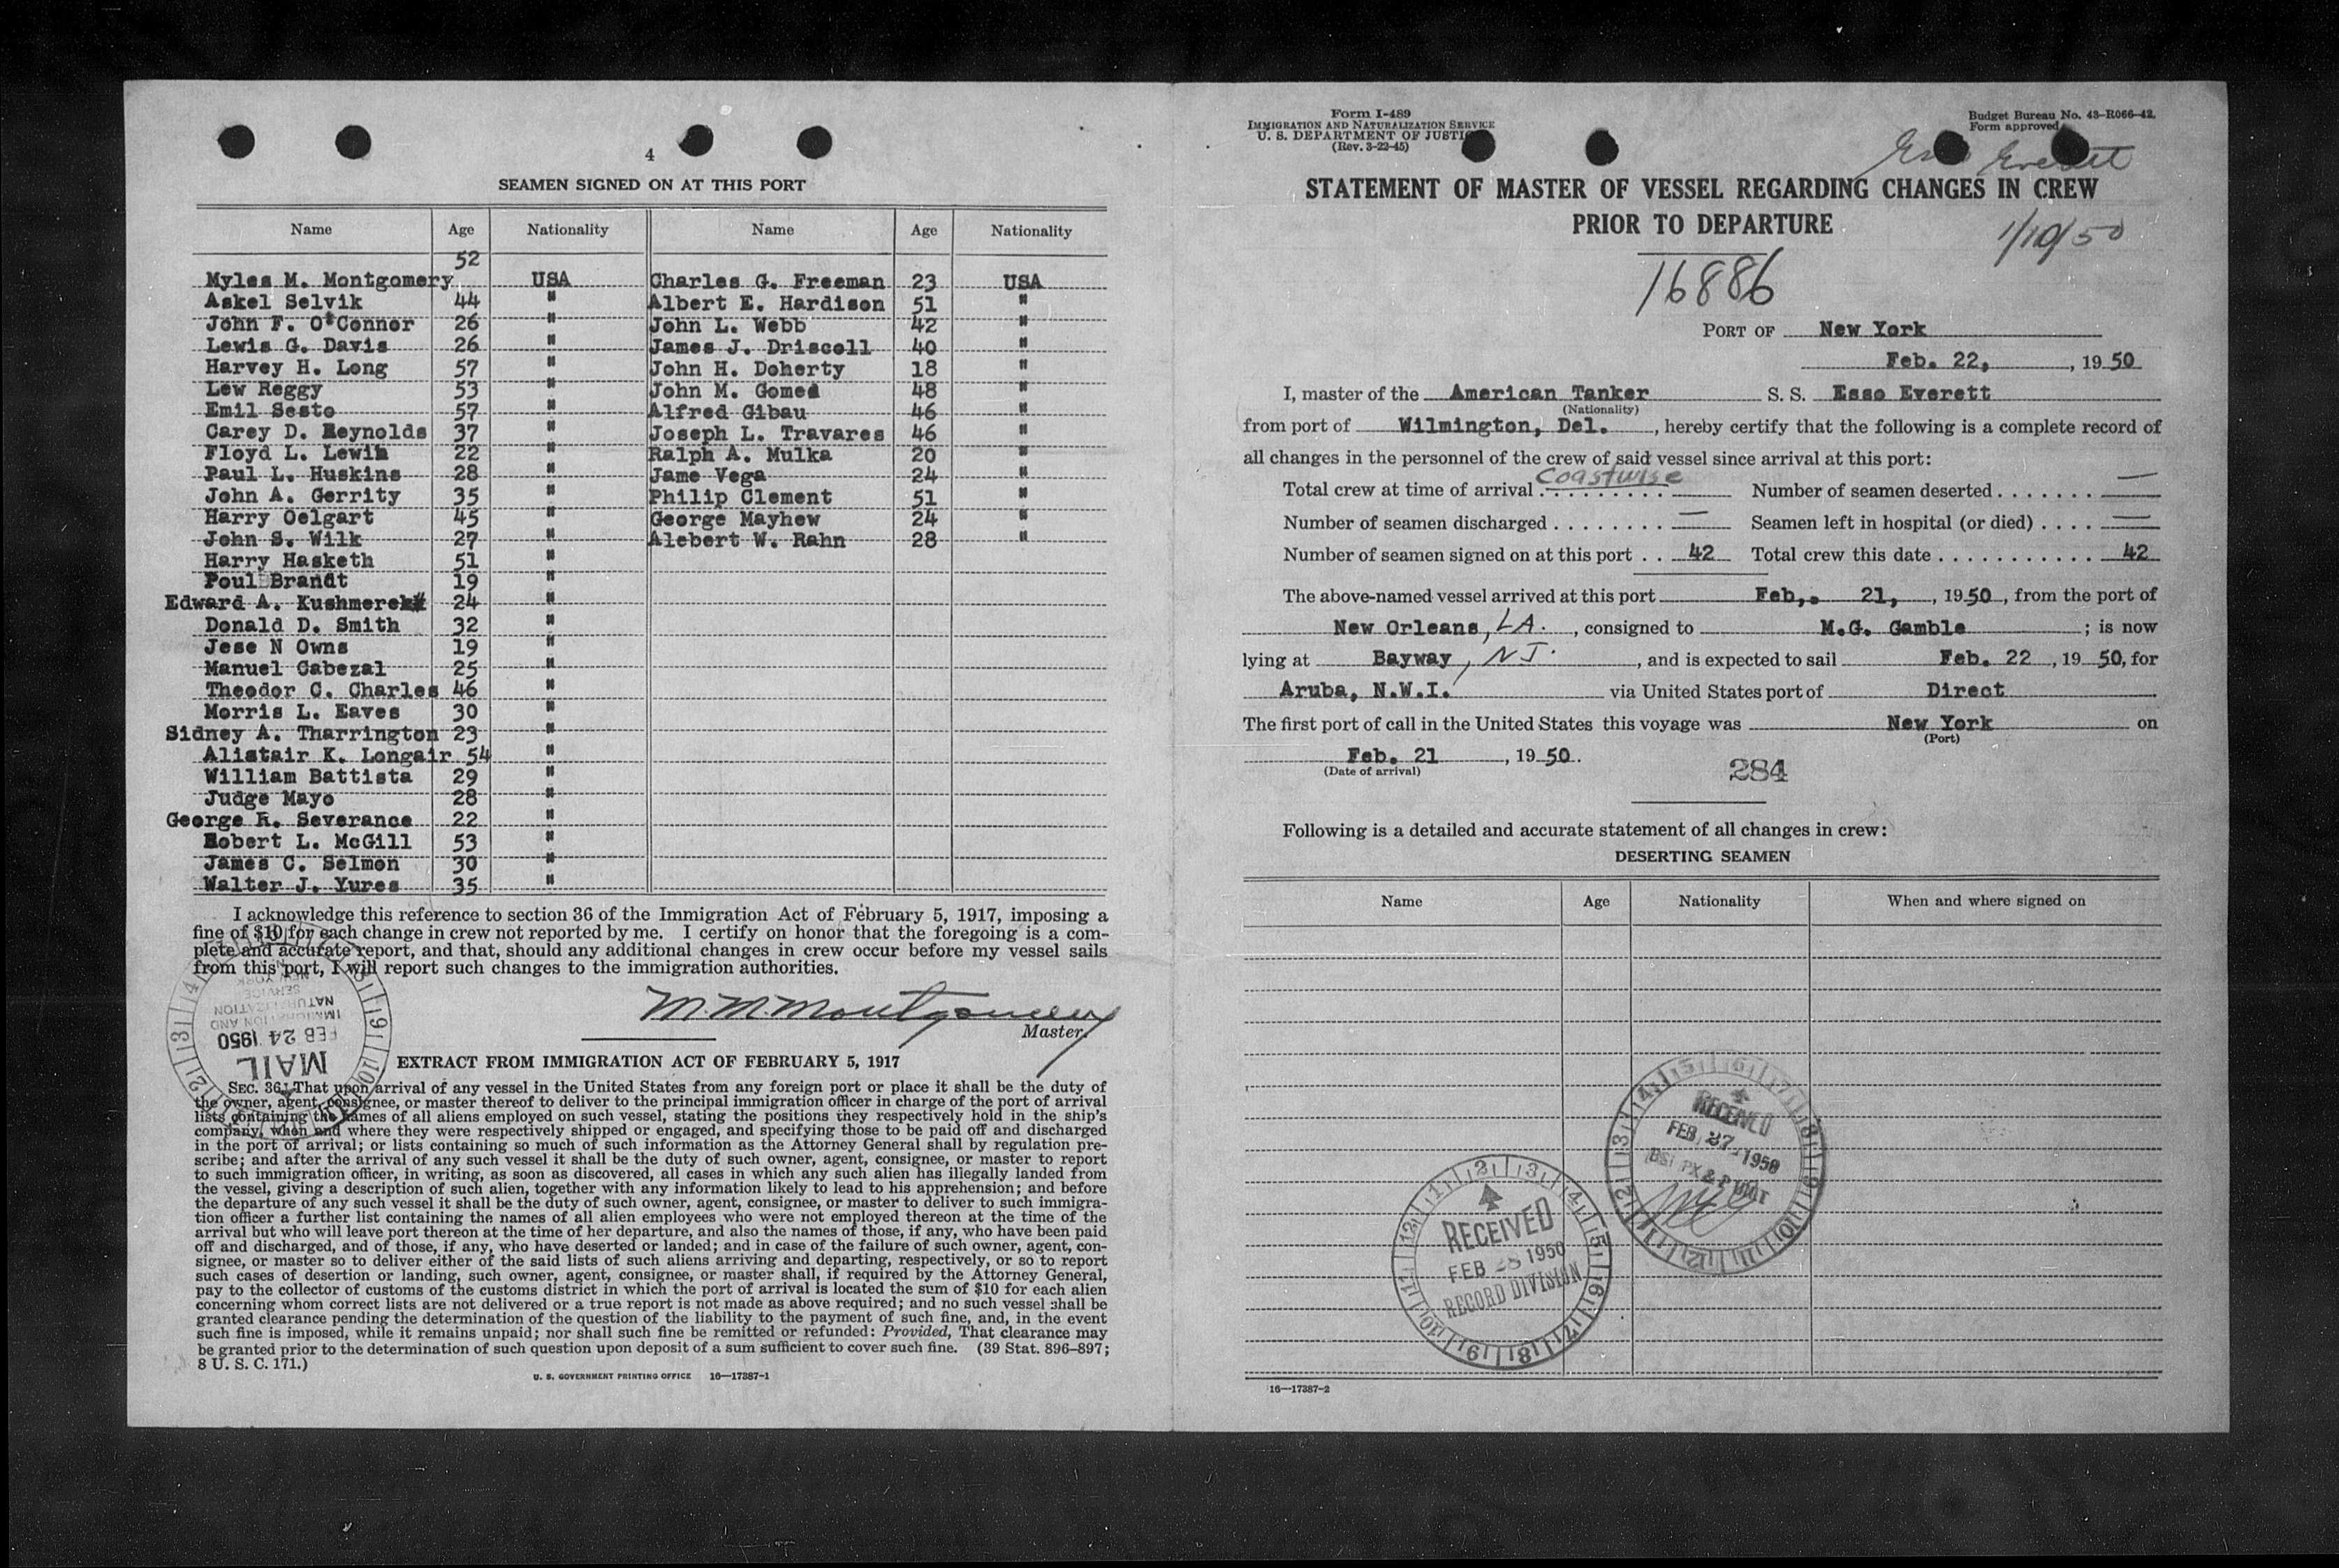 4
SEAMEN SIGNED ON AT THIS PORT
Name Age Nationality Name Age Nationality
Myles M. Montgomery 52 USA Charles G. Freeman 23 USA
Askel Selvik 44 " Albert E. Hardison 51 "
John F. O'Connor 26 " John L. Webb 42 "
Lewis G. Davis 26 " James J. Driscoll 40 "
Harvey H. Long 57 " John H. Doherty 18 "
Lew Reggy 53 " John M. Gomed 48 "
Emil Sesto 57 " Alfred Gibau 46 "
Carey D. Reynolds 37 " Joseph L. Travares 46 "
Floyd L. Lewin 22 " Ralph A. Mulka 20 "
Paul L. Huskins 28 " Jame Vega 24 "
John A. Gerrity 35 " Philip Clement 51 "
Harry Oelgart 45 " George Mayhew 24 "
John S. Wilk 27 " Alebert W. Rahn 28 "
Harry Hasketh 51 "
Poul Brandt 19 "
Edward A. Kushmerek 24 "
Donald D. Smith 32 "
Jese N Owns 19 "
Manuel Cabezal 25 "
Theodor C. Charles 46 "
Morris L. Eaves 30 "
Sidney A. Tharrington 23 "
Alistair K. Longair 54 "
William Battista 29 "
Judge Mayo 28 "
George R. Severance 22 "
Robert L. McGill 53 "
James C. Selmon 30 "
Walter J. Yures 35 "
I acknowledge this reference to section 36 of the Immigration Act of February 5, 1917, imposing a
fine of $10 for each change in crew not reported by me. I certify on honor that the foregoing is a com-
plete and accurate report, and that, should any additional changes in crew occur before my vessel sails
from this port, I will report such changes to the immigration authorities.
M. M. Montgomery
Master.
MAIL
FEB 24 1950
IMMIGRATION AND
NATURALIZATION
SERVICE
NEW YORK
EXTRACT FROM IMMIGRATION ACT OF FEBRUARY 5, 1917
SEC. 36. That upon arrival of any vessel in the United States from any foreign port or place it shall be the duty of
the owner, agent, consignee, or master thereof to deliver to the principal immigration officer in charge of the port of arrival
lists containing the names of all aliens employed on such vessel, stating the positions they respectively hold in the ship's
company, when and where they were respectively shipped or engaged, and specifying those to be paid off and discharged
in the port of arrival; or lists containing so much of such information as the Attorney General shall by regulation pre-
scribe; and after the arrival of any such vessel it shall be the duty of such owner, agent, consignee, or master to report
to such immigration officer, in writing, as soon as discovered, all cases in which any such alien has illegally landed from
the vessel, giving a description of such alien, together with any information likely to lead to his apprehension; and before
the departure of any such vessel it shall be the duty of such owner, agent, consignee, or master to deliver to such immigra-
tion officer a further list containing the names of all alien employees who were not employed thereon at the time of the
arrival but who will leave port thereon at the time of her departure, and also the names of those, if any, who have been paid
off and discharged, and of those, if any, who have deserted or landed; and in case of the failure of such owner, agent, con-
signee, or master so to deliver either of the said lists of such aliens arriving and departing, respectively, or so to report
such cases of desertion or landing, such owner, agent, consignee, or master shall, if required by the Attorney General,
pay to the collector of customs of the customs district in which the port of arrival is located the sum of $10 for each alien
concerning whom correct lists are not delivered or a true report is not made as above required; and no such vessel shall be
granted clearance pending the determination of the question of the liability to the payment of such fine, and, in the event
such fine is imposed, while it remains unpaid; nor shall such fine be remitted or refunded: Provided, That clearance may
be granted prior to the determination of such question upon deposit of a sum sufficient to cover such fine. (39 Stat. 896–897;
8 U. S. C. 171.)
U. S. GOVERNMENT PRINTING OFFICE 16—17387-1
Form I-489
IMMIGRATION AND NATURALIZATION SERVICE
U. S. DEPARTMENT OF JUSTICE
(Rev. 3-22-45)
Budget Bureau No. 43-R066-42.
Form approved.
Everett
STATEMENT OF MASTER OF VESSEL REGARDING CHANGES IN CREW
PRIOR TO DEPARTURE
1/10/50
16886
PORT OF New York
Feb. 22, , 19 50
I, master of the American Tanker S. S. Esso Everett
(Nationality)
from port of Wilmington, Del. , hereby certify that the following is a complete record of
all changes in the personnel of the crew of said vessel since arrival at this port:
Total crew at time of arrival Coastwise — Number of seamen deserted —
Number of seamen discharged — Seamen left in hospital (or died) —
Number of seamen signed on at this port 42 Total crew this date 42
The above-named vessel arrived at this port Feb,. 21, , 19 50, from the port of
New Orleans, LA. , consigned to M.G. Gamble ; is now
lying at Bayway, N.J. , and is expected to sail Feb. 22 , 19 50, for
Aruba, N.W.I. via United States port of Direct
The first port of call in the United States this voyage was New York on
(Port)
Feb. 21 , 19 50.
(Date of arrival)
284
Following is a detailed and accurate statement of all changes in crew:
DESERTING SEAMEN
Name Age Nationality When and where signed on
RECEIVED
FEB 27 1950
RECEIVED
FEB 28 1950
RECORD DIVISION
16—17387-2